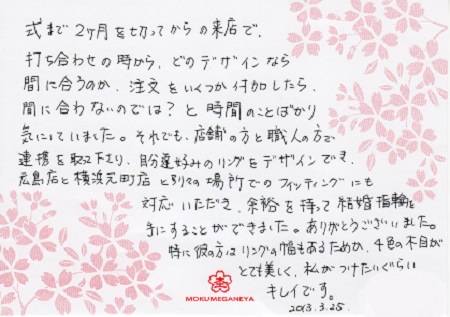 式まで2ヶ月を切ってからの来店で、
打ち合わせの時から、どのデザインなら
間に合うのか、注文をいくつか付加したら、
間に合わないのでは？と時間のことばかり
気にしていました。それでも、店舗の方と職人の方で
連携を取って下さり、自分達好みのリングをデザインでき、
広島店と横浜元町店と別々の場所でのフィッティングにも
対応いただき、余裕を持って結婚指輪を
手にすることができました。ありがとうございました。
特に彼の方はリングの幅もあるためか、4色の木目が
とても美しく、私がつけたいぐらい
キレイです。
2013.3.25.
MOKUMEGANEYA